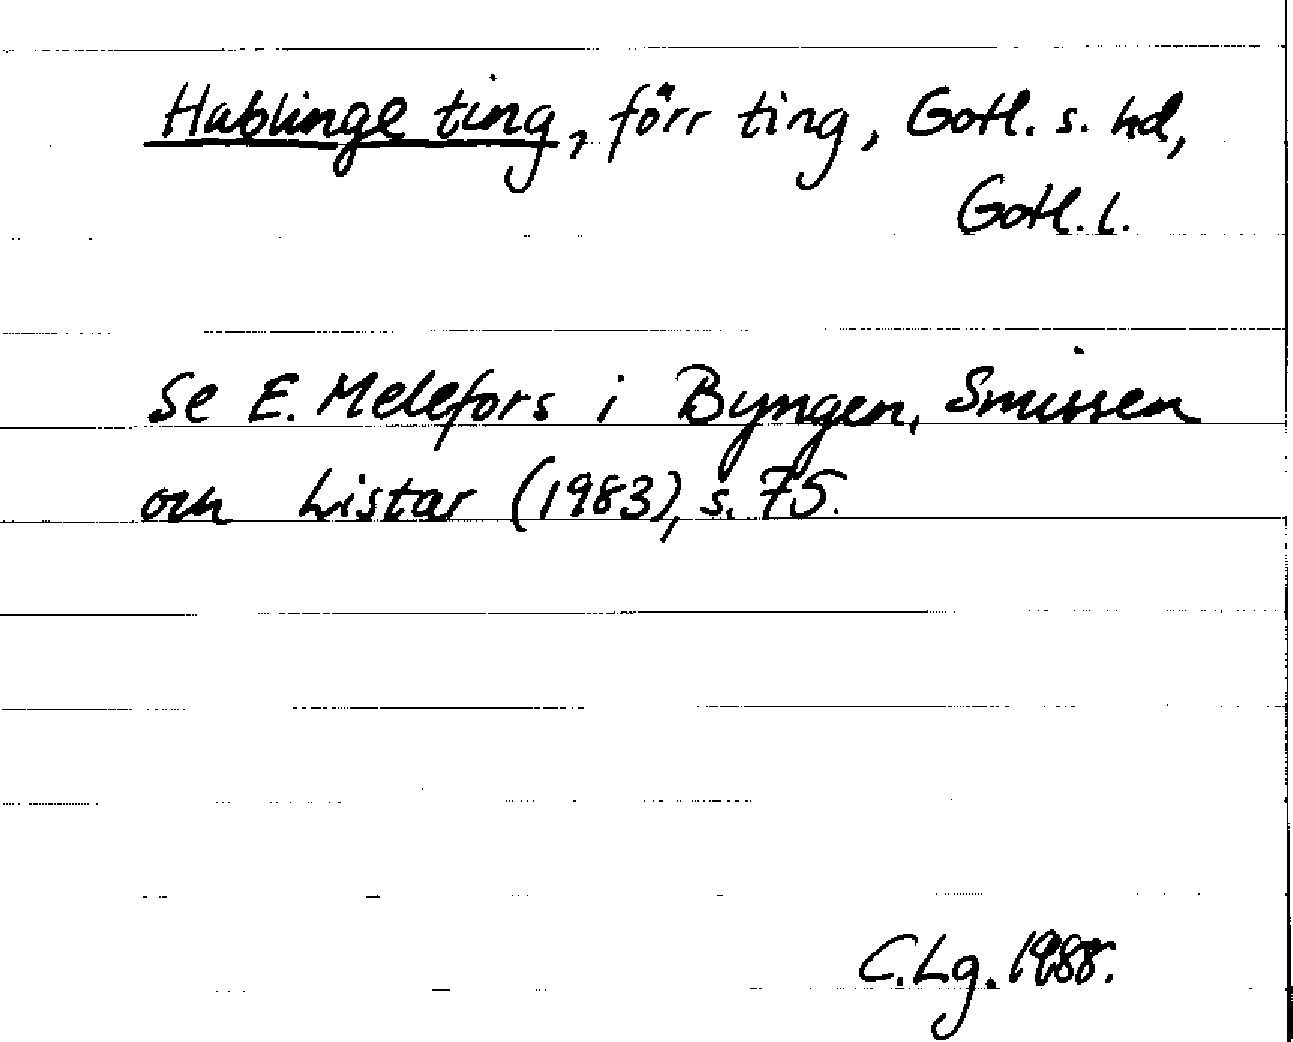 Hablinge ting, förr ting, Gotl. s. hd,
Gotl. l.
Se E. Melefors i Byngen, Smissen
och Listar (1983), s. 75.
C.Lg. 1988.